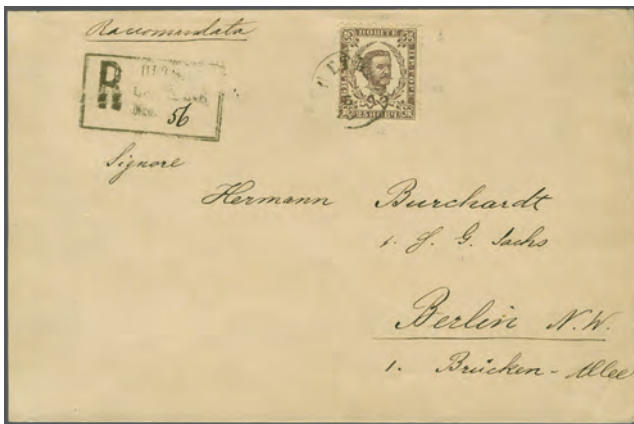 Raccomandata
R
56
Signore
Hermann Burchardt
G. Sachs
Berlin N.W.
1. Brücken-Allee